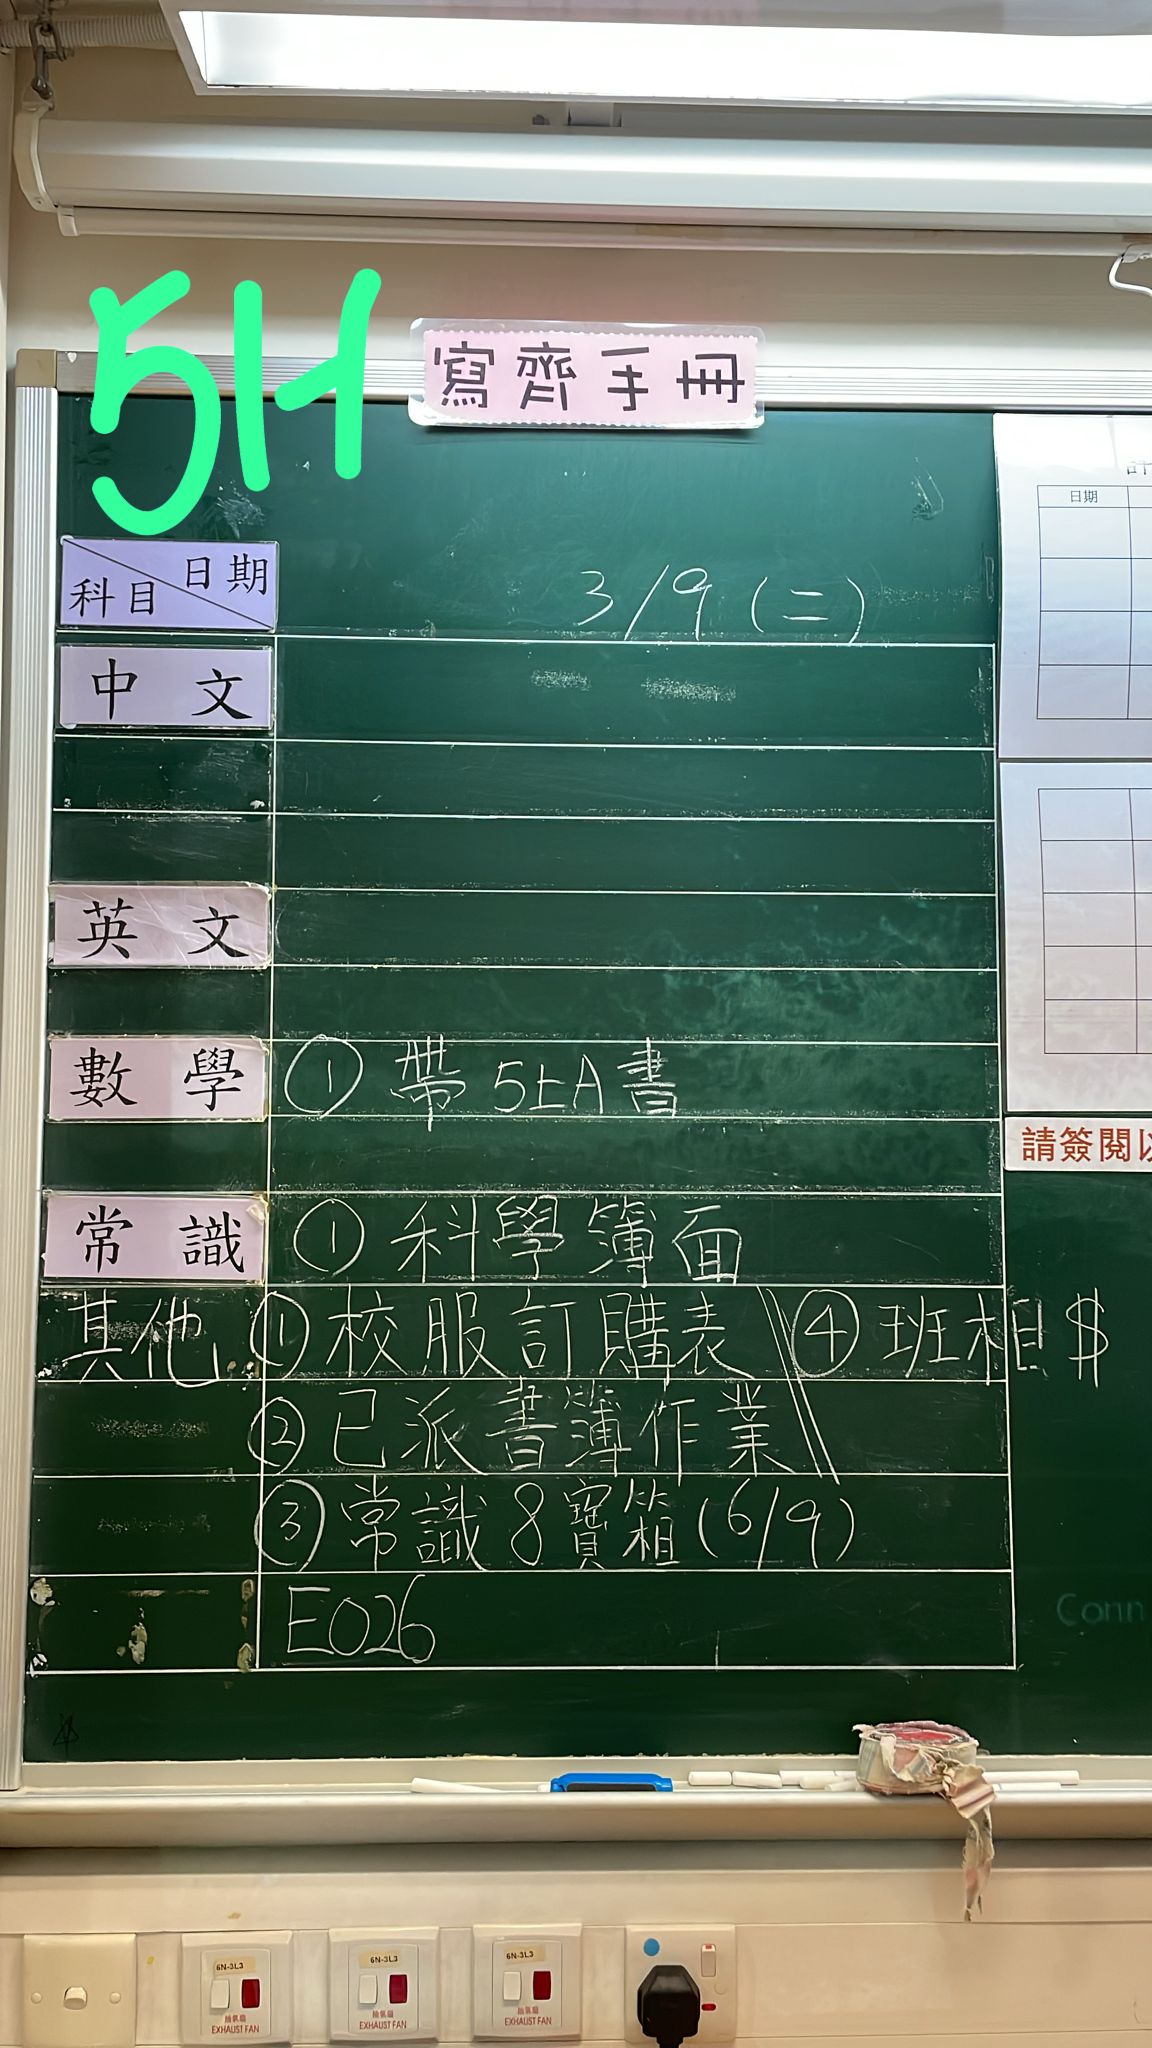 5H
寫齊手冊
科目 日期
3/9 (二)
中文
英文
數學 ① 帶 5上A書
常識 ① 科學簿面
其他 ① 校服訂購表 ④ 班相 $
② 已派書簿作業
③ 常識 8 寶箱 (6/9)
E026
日期
請簽閱以
Conn
6N-3L3
抽氣扇
EXHAUST FAN
6N-3L3
抽氣扇
EXHAUST FAN
6N-3L3
抽氣扇
EXHAUST FAN